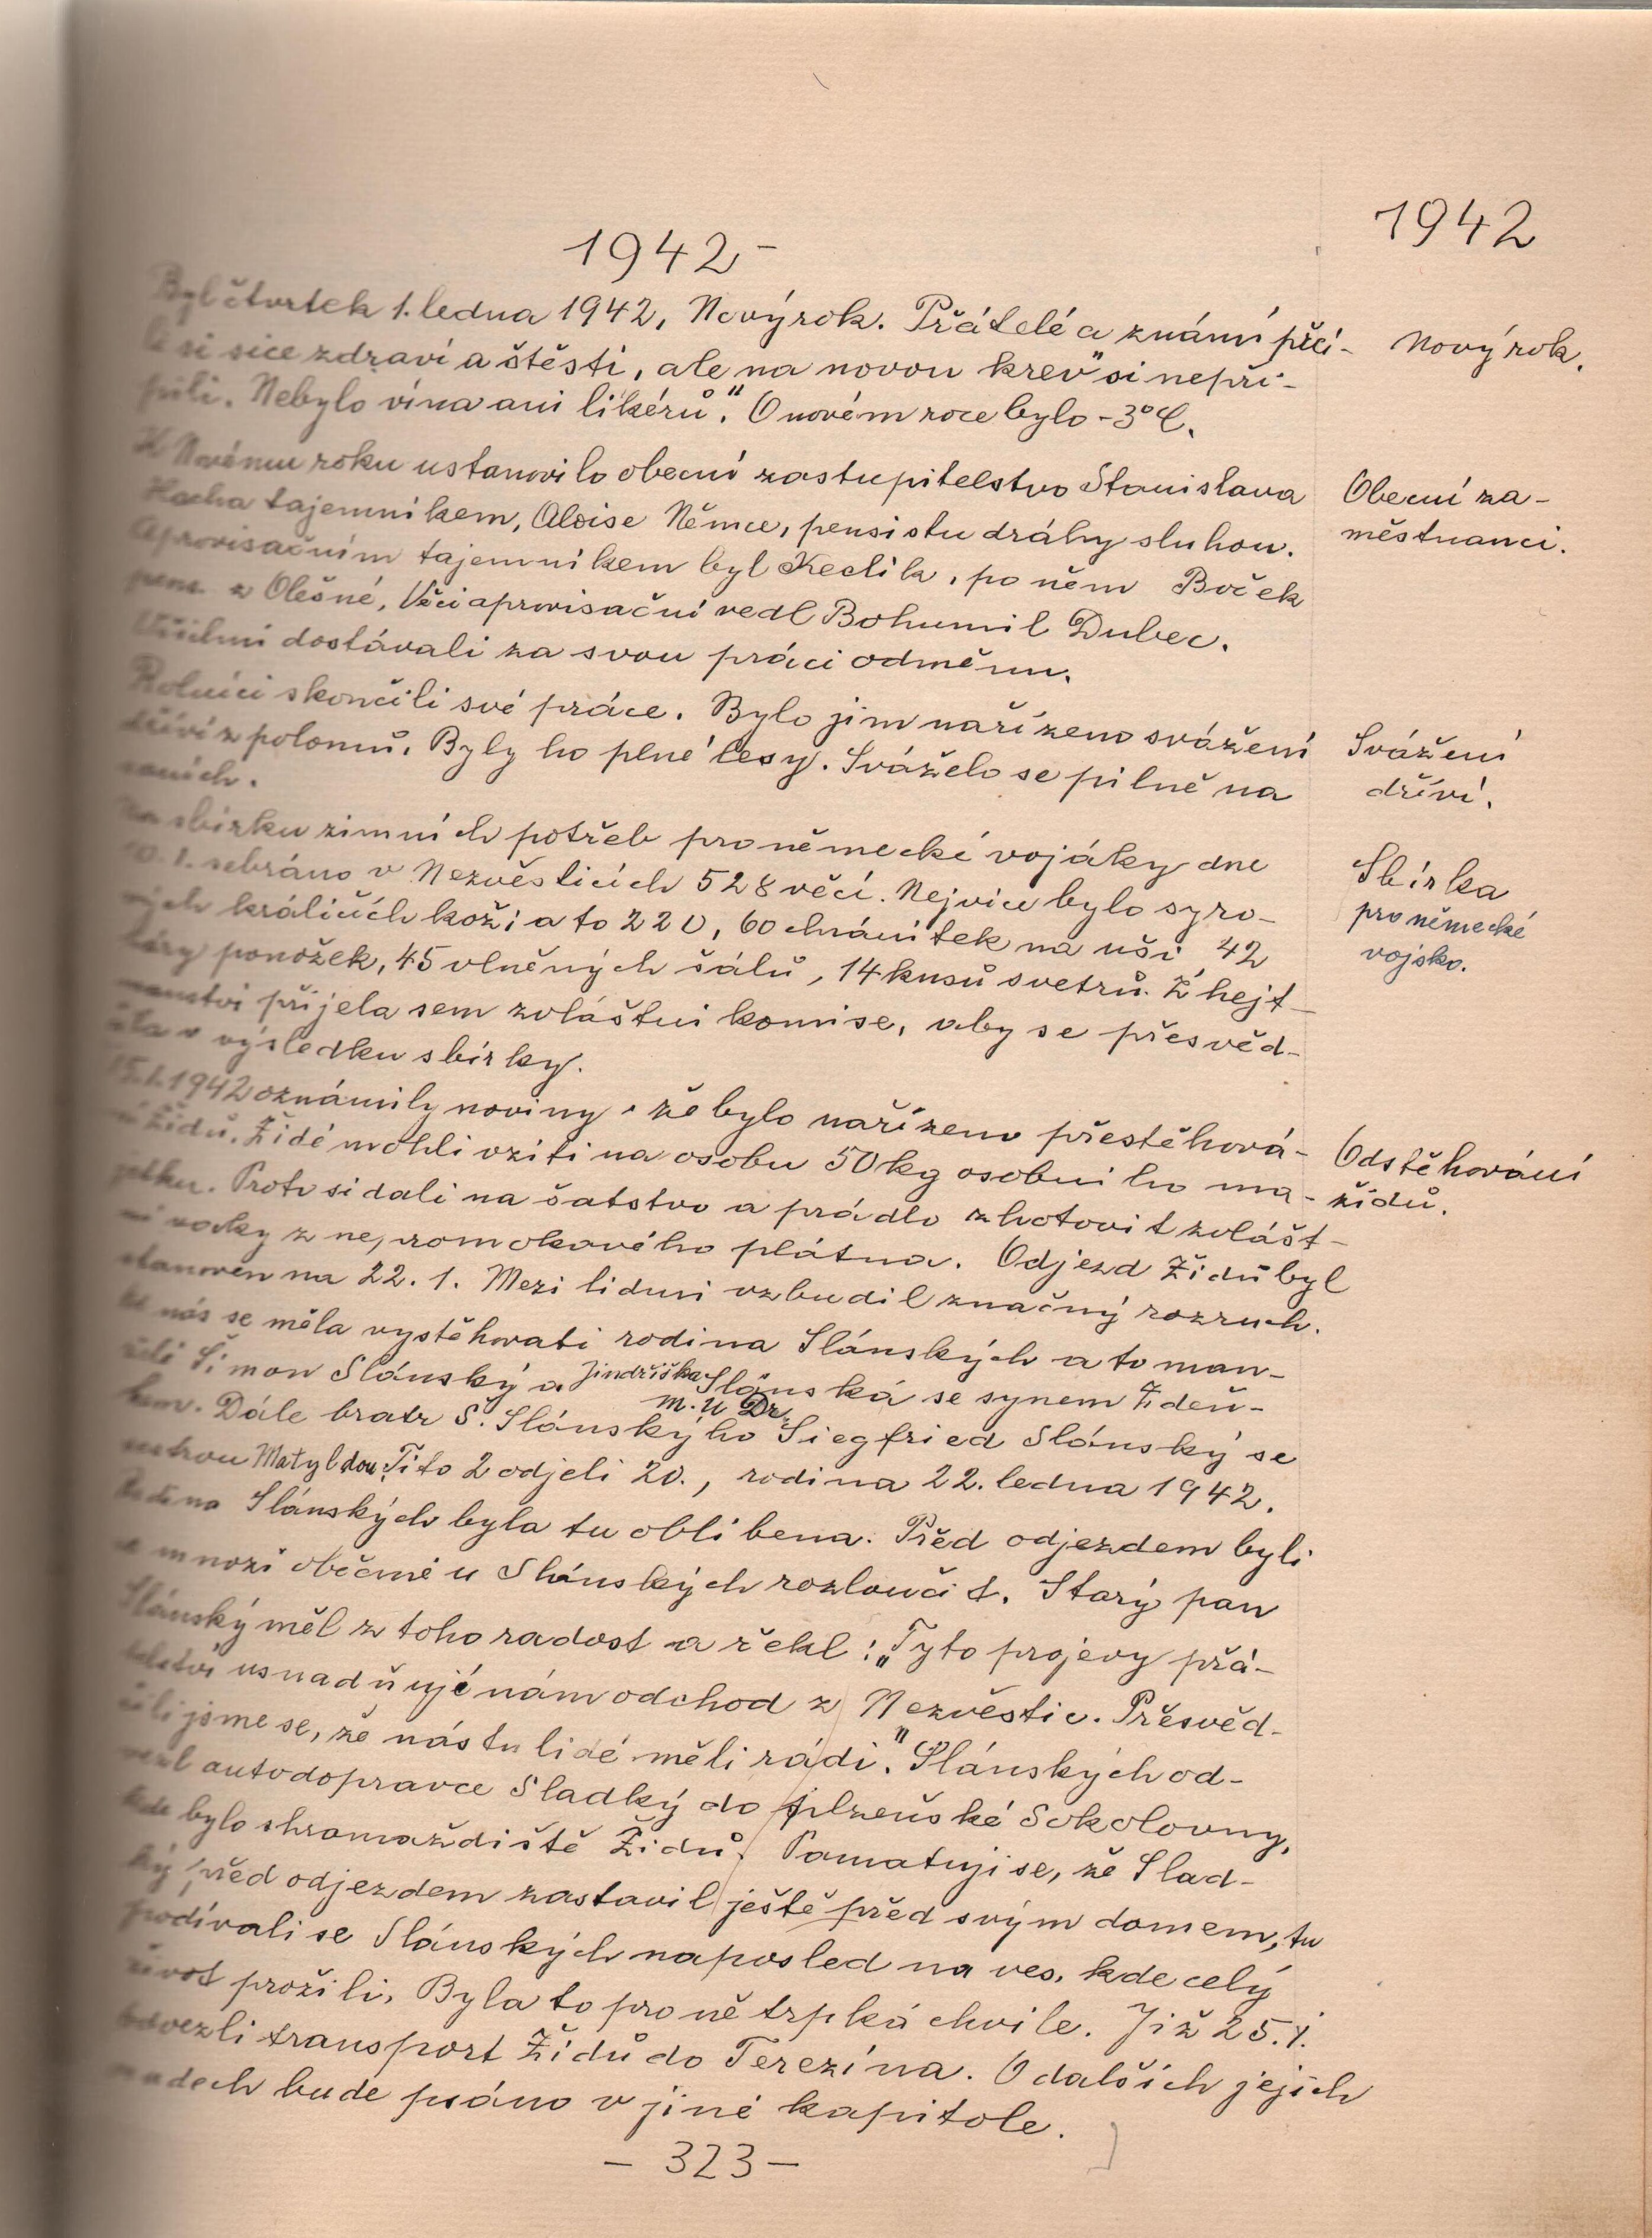 1942
1942 -
Byl čtvrtek 1. ledna 1942, Nový rok. Přátelé a známí přá-
Nový rok.
li si sice zdraví a štěstí, ale na novou krev" si nepři-
pili. Nebylo vína ani likérů." O novém roce bylo -3°C.
K Novému roku ustanovilo obecní zastupitelstvo Stanislava
Obecní za-
Hacha tajemníkem, Aloise Němce, pensistu dráhy sluhou.
městnanci.
Aprovisačním tajemníkem byl Kedlik, po něm Boček
z Olešné, Věci aprovisační vedl Bohumil Dubec.
Všichni dostávali za svou práci odměnu.
Rolníci skončili své práce. Bylo jim nařízeno svážení
Svážení
dříví z polomů. Byly ho plné lesy. Sváželo se pilně na
dříví.
saních.
Na sbírku zimních potřeb pro německé vojáky dne
Sbírka
10. 1. sebráno v Nezvěsticích 528 věcí. Nejvíce bylo syro-
pro německé
vých králičích koží a to 220, 60 chránítek na uši 42
vojsko.
páry ponožek, 45 vlněných šálů, 14 kusů svetrů. Z hejt-
manství přijela sem zvláštní komise, aby se přesvěd-
čila o výsledku sbírky.
15. 1. 1942 oznámily noviny, že bylo nařízeno přestěhová-
Odstěhování
ní Židů. Židé mohli vzíti na osobu 50 kg osobního ma-
židů.
jetku. Proto si dali na šatstvo a prádlo zhotovit zvlášt-
ní vaky z nepromokavého plátna. Odjezd Židů byl
stanoven na 22. 1. Mezi lidmi vzbudil značný rozruch.
Od nás se měla vystěhovati rodina Slánských a to man-
želé Šimon Slánský a Jindřiška Slánská se synem Zdeň-
kem. Dále bratr Š. Slánskýho M.U Dr. Siegfried Slánský se
sestrou Matyldou. Tito 2 odjeli 20., rodina 22. ledna 1942.
Rodina Slánských byla tu oblíbena. Před odjezdem byli
se mnozí občané u Slánských rozloučit. Starý pan
Slánský měl z toho radost a řekl: „Tyto projevy přá-
telství usnadňují nám odchod z Nezvěstic. Přesvěd-
čili jsme se, že nás tu lidé měli rádi." Slánských od-
vezl autodopravce Sladký do plzeňské Sokolovny,
kde bylo shromaždiště Židů. Pamatuji se, že Slad-
ký před odjezdem zastavil ještě před svým domem, tu
podívali se Slánských naposled na ves, kde celý
život prožili. Byla to pro ně trpká chvíle. Již 25. 1.
odvezli transport Židů do Terezína. O dalších jejich
osudech bude psáno v jiné kapitole.
- 323 -